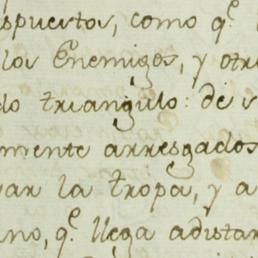 spuestos, como q.e
los Enemigos, y otr
do triangulo: de s
mente arresgados
var la tropa, y a
no, q.e llega a distar